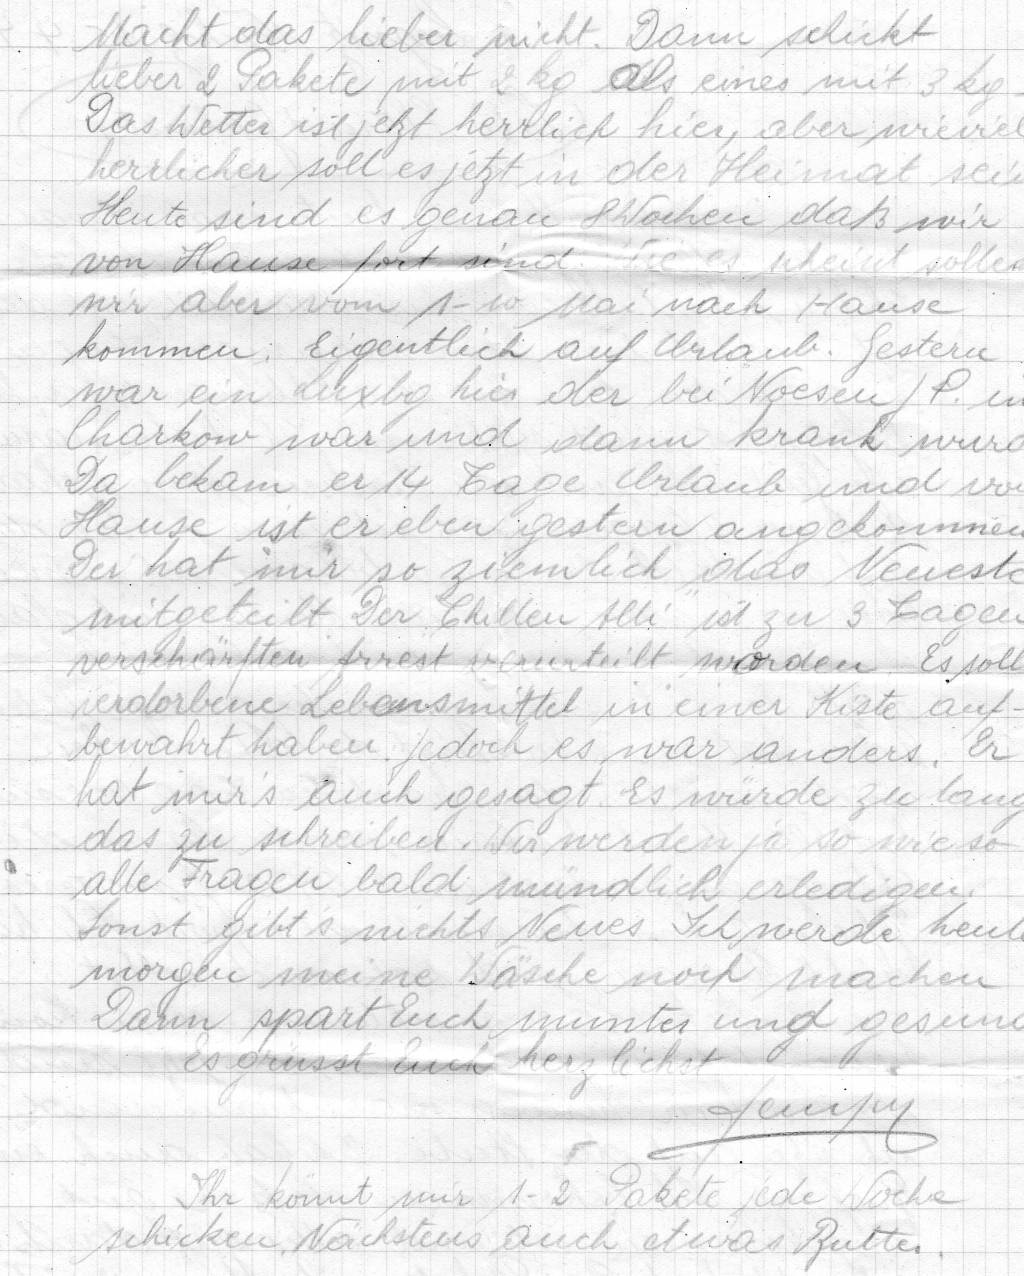 Macht das lieber nicht. Dann schickt
lieber 2 Pakete mit 2 kg als eines mit 3 kg.
Das Wetter ist jetzt herrlich hier, aber wieviel
herrlicher soll es jetzt in der Heimat sein
Heute sind es genau 8 Wochen daß wir
von Hause fort sind. Wie es scheint sollen
wir aber vom 1-10 Mai nach Hause
kommen. Eigentlich auf Urlaub. Gestern
war ein Luxbg hier der bei Noesen J P. in
Charkow war und dann krank wurd
Da bekam er 14 Tage Urlaub und von
Hause ist er eben gestern angekommen
Der hat mir so ziemlich das Neueste
mitgeteilt Der "Thillen Alli" ist zu 3 Tagen
verschärften Arrest verurteilt worden. Es soll
verdorbene Lebensmittel in einer Kiste auf-
bewahrt haben. jedoch es war anders. Er
hat mir's auch gesagt. Es würde zu lang
das zu schreiben. Wir werden ja so wie so
alle Fragen bald mündlich erledigen.
Sonst gibt's nichts Neues. Ich werde heute
morgen meine Wäsche noch machen
Dann spart Euch munter und gesund
Es grüsst Euch herzlichst
Jempy
Ihr könnt mir 1-2 Pakete jede Woche
schicken. Nächstens auch etwas Butter.